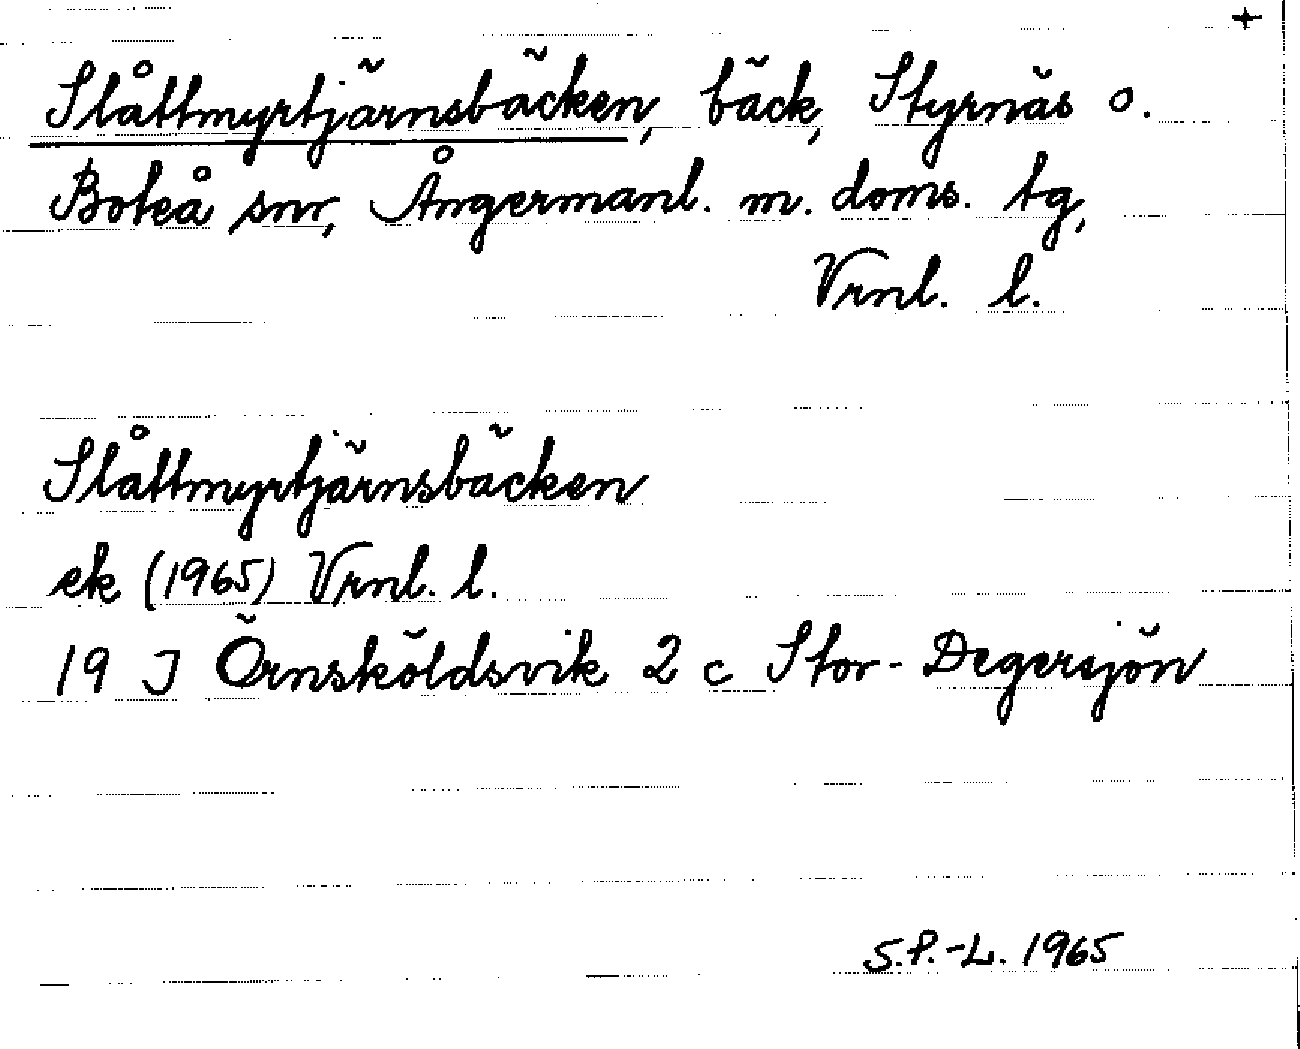 +
Slåttmyrtjärnsbäcken, bäck, Styrnäs o.
Boteå snr, Ångermanl. m. doms. tg,
Vrnl. l.
Slåttmyrtjärnsbäcken
ek (1965) Vrnl. l.
19 J Örnsköldsvik 2 c Stor-Degersjön
S.P.-L. 1965